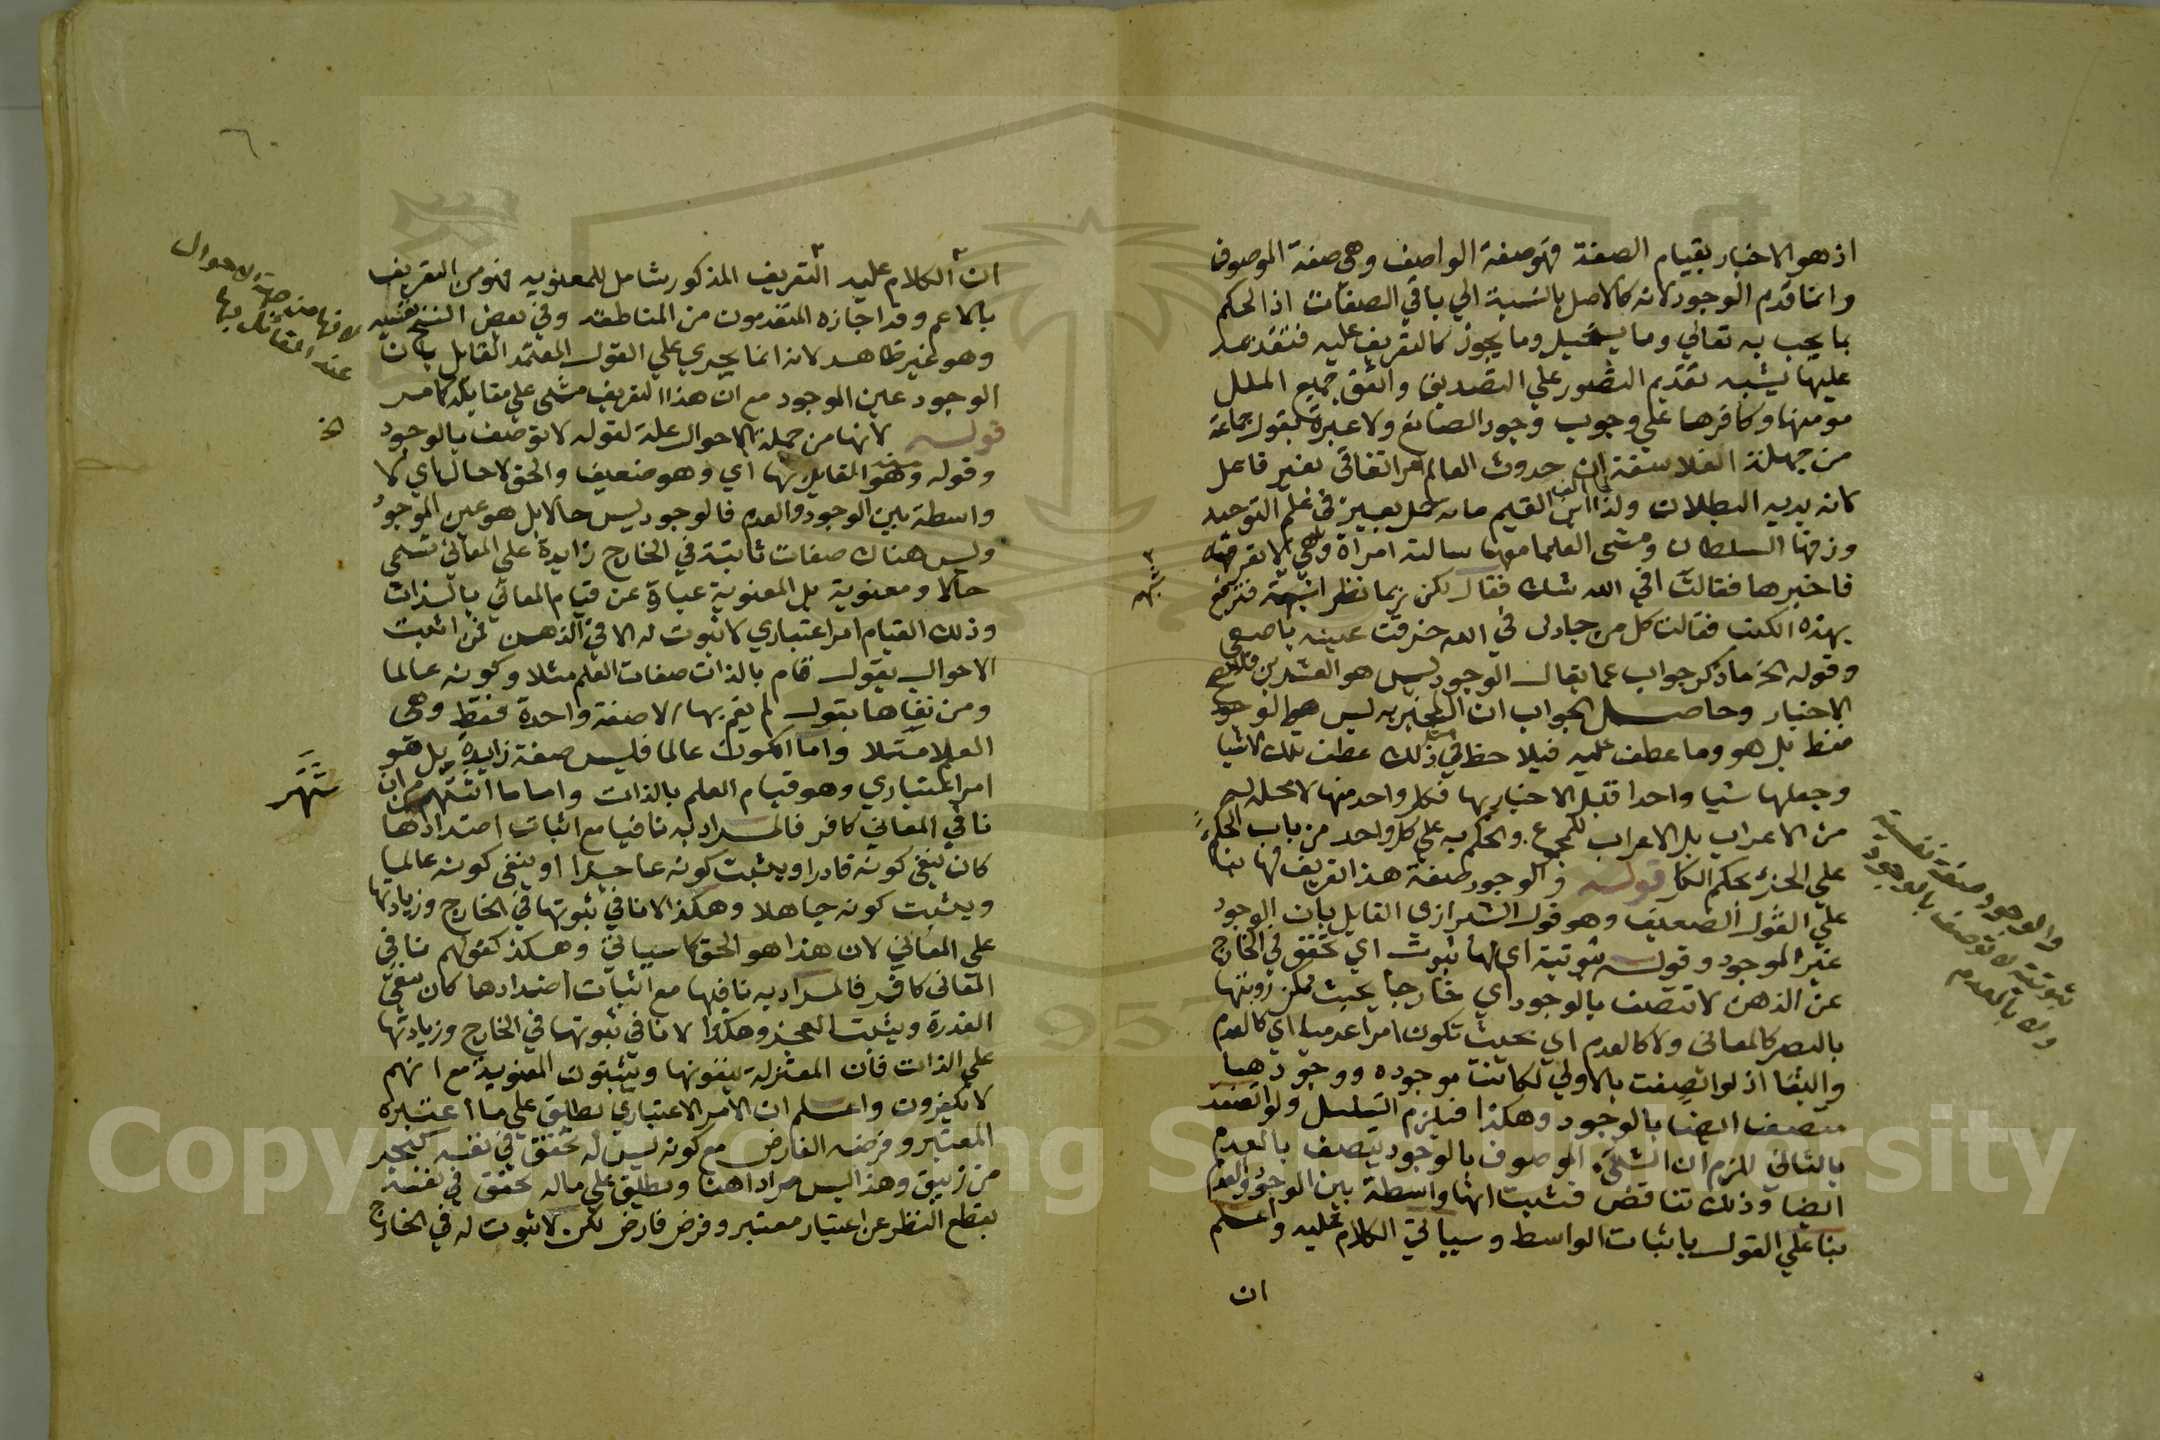 اذ هو الاخبار بقيام الصفة فهو صفة الواصف وهي صفة الموصوف
وانما قدم الوجود لانه كالاصل بالنسبة الي باقي الصفات اذ الحكم
بما يجب به تعالي وما يستحيل وما يجوز كالتفريع عليه فتقديمه
عليها يشبه تقديم التصور علي التصديق واتفق جميع الملل
مومنها وكافرها علي وجوب وجود الصانع ولا عبرة بقول جماعة
من جهلة الفلاسفة ان حدوث العالم امر اتفاقي بغير فاعل
كانه بديهي البطلان ولذا ابن القيم
وزفها السلطان ومشي العلما معها سالته امراة
فاخبرها فقالت افي الله شك فقال لكن ربما نظرا شبهة فترجع
بهذه الكتب فقالت كل من جادلني في الله خرقت عينيه باصبعي
وقوله الخ ما ذكر جواب عما يقال الوجود ليس هو العشرين فلا يصح
الاخبار وحاصل الجواب ان المخبر به ليس هو الوجود
فقط بل هو وما عطف عليه فيلاحظ في ذلك عطف تلك الاشيا
وجعلها شيا واحدا قبل الاخبار بها فكل واحد منها لا محل له
من الاعراب بل الاعراب للمجموع والحكم به علي كل واحد من باب الحكم
علي الجزء بحكم الكل قوله والوجود صفة هذا تعريف لها بنا
علي القول الضعيف وهو قول الشيرازي القايل بان الوجود
غير الموجود وقوله ثبوتية اي لها ثبوت اي تحقق في الخارج
عن الذهن لا تتصف بالوجود اي خارجا بحيث يمكن رويتها
بالبصر كالمعاني ولا كالعدم اي بحيث تكون امرا عدميا اي كالعدم
والبقا اذ لو اتصفت بالاولي لكانت موجوده ووجودها
متصف ايضا بالوجود وهكذا فيلزم التسلسل ولو اتصفت
بالثاني للزم ان الشيء الموصوف بالوجود يتصف بالعدم
ايضا وذلك تناقض فثبت انها واسطة بين الوجود والعدم
بنا علي القول باثبات الواسط وسياتي الكلام عليه واعلم
ان
والوجود صفة نفسية
ثبوتية لا توصف بالوجود
ولا بالعدم
ان الكلام عليه التعريف المذكور شامل للمعنويه فهو من التعريف
بالاعم وقد اجازه المتقدمون من المناطقه وفي بعض النسخ نفسيه
وهو غير ظاهر لانه انما يجري علي القول المعتمد القايل بان
الوجود عين الموجود مع ان هذا التعريف مشي علي مقابله كما مر
قوله لانها من جملة الاحوال علة لقوله لا توصف بالوجود
وقوله القايل بها اي وهو ضعيف والحق لا حال اي لا
واسطة بين الوجود والعدم فالوجود ليس حالا بل هو عين الموجود
وليس هناك صفات ثابتة في الخارج زايدة علي المعاني تسمي
حالا ومعنوية بل المعنوية عبارة عن قيام المعاني بالذات
وذلك القيام امر اعتباري لا ثبوت له الا في الذهن فمن اثبت
الاحوال يقول قام بالذات صفات العلم مثلا وكونه عالما
ومن نفاها يقول لم يقم بها الا صفة واحدة فقط وهي
العلم مثلا واما الكون عالما فليس صفة زايدة بل هو
امر اعتباري وهو قيام العلم بالذات واما ما اشتهر من ان
نافي المعاني كافر فالمراد به نافيها مع اثبات اضدادها
كان ينفي كونه قادرا ويثبت كونه عاجزا او ينفي كونه عالما
ويثبت كونه جاهلا وهكذا لا نافي ثبوتها في الخارج وزيادتها
علي المعاني لان هذا هو الحق كما سياتي وهكذا كقولهم نافي
المعاني كافر فالمراد به نافيها مع اثبات اضدادها كان ينفي
القدرة ويثبت العجز وهكذا لا نافي ثبوتها في الخارج وزيادتها
علي الذات فان المعتزلة ينفونها ويثبتون المعنوية مع انهم
لا يكفرون واعلم ان الامر الاعتباري يطلق علي ما اعتبره
المعتبر وفرضه الفارض مع كونه ليس له تحقق في نفسه كبحر
من زيبق وهذا ليس مرادا هنا ويطلق علي ماله تحقق في نفسه
بقطع النظر عن اعتبار معتبر وفرض فارض لكن لا ثبوت له في الخارج
لانها من جملة الاحوال
عند القائل بها
الخ